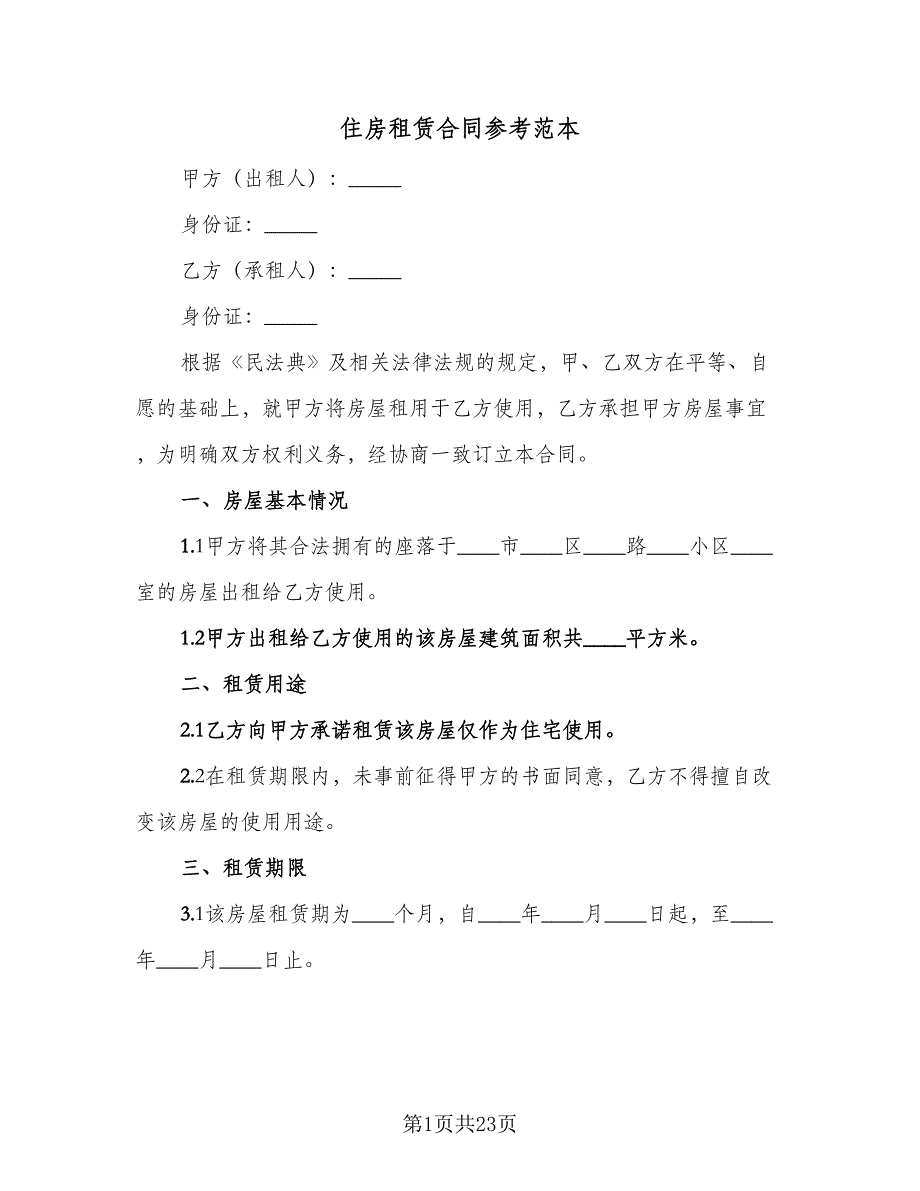 住房租赁合同参考范本
甲方（出租人）：_____
身份证：_____
乙方（承租人）：_____
身份证：_____
根据《民法典》及相关法律法规的规定，甲、乙双方在平等、自
愿的基础上，就甲方将房屋租用于乙方使用，乙方承担甲方房屋事宜
，为明确双方权利义务，经协商一致订立本合同。
一、房屋基本情况
1.1甲方将其合法拥有的座落于____市____区____路____小区____
室的房屋出租给乙方使用。
1.2甲方出租给乙方使用的该房屋建筑面积共____平方米。
二、租赁用途
2.1乙方向甲方承诺租赁该房屋仅作为住宅使用。
2.2在租赁期限内，未事前征得甲方的书面同意，乙方不得擅自改
变该房屋的使用用途。
三、租赁期限
3.1该房屋租赁期为____个月，自____年____月____日起，至____
年____月____日止。
第1页共23页